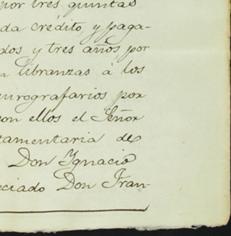 por tres quintas
da crédito y paga-
dos y tres años por
libranzas á los
urografarios por
con ellos el Señor
tamentaria de
Don Ignacio
eciado Don Fran-